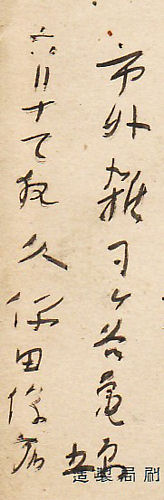 市外雑司ヶ谷亀原五
六月十 夜 久保田俊彦
刷局製造